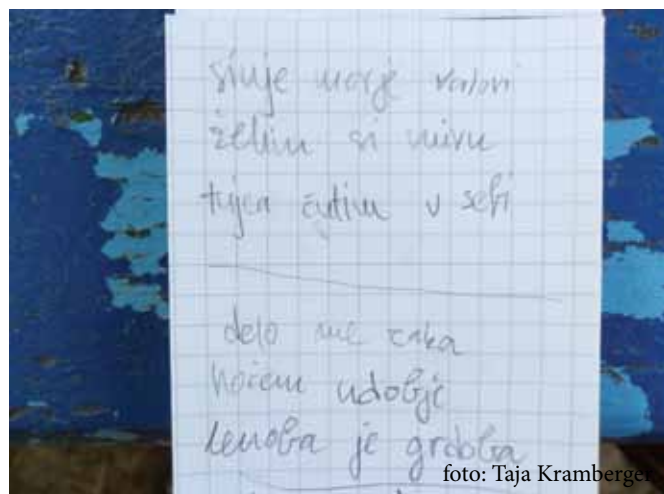 sinje morje valovi
želim si miru
tujca čutim v sebi
delo me čaka
hočem udobje
lenoba je grdoba
foto: Taja Kramberger